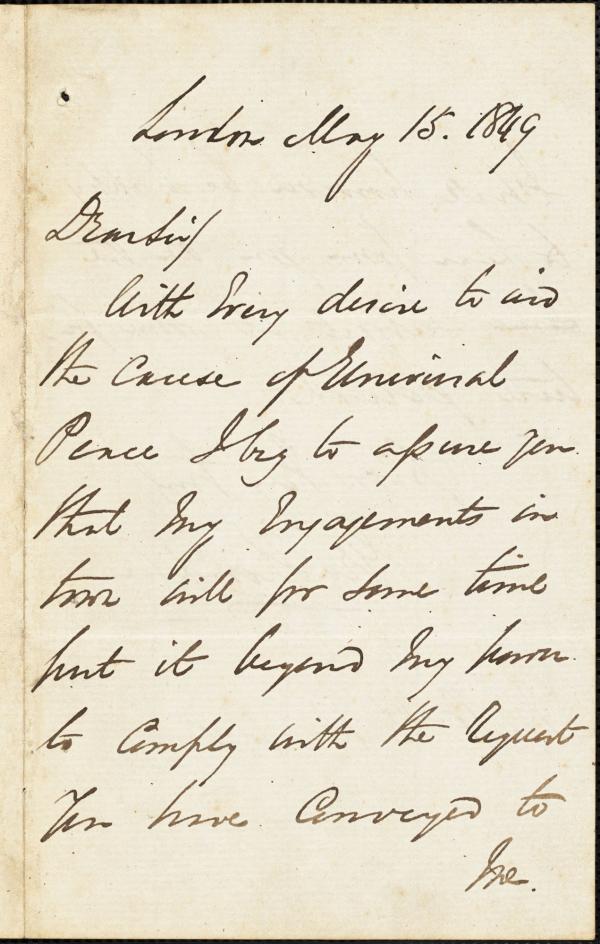 London May 15. 1849
Dear Sir/
With Every desire to aid
the Cause of Universal
Peace I beg to assure you
that My Engagements in
town will for some time
put it beyond My power
to Comply with the Request
You have Conveyed to
Me.